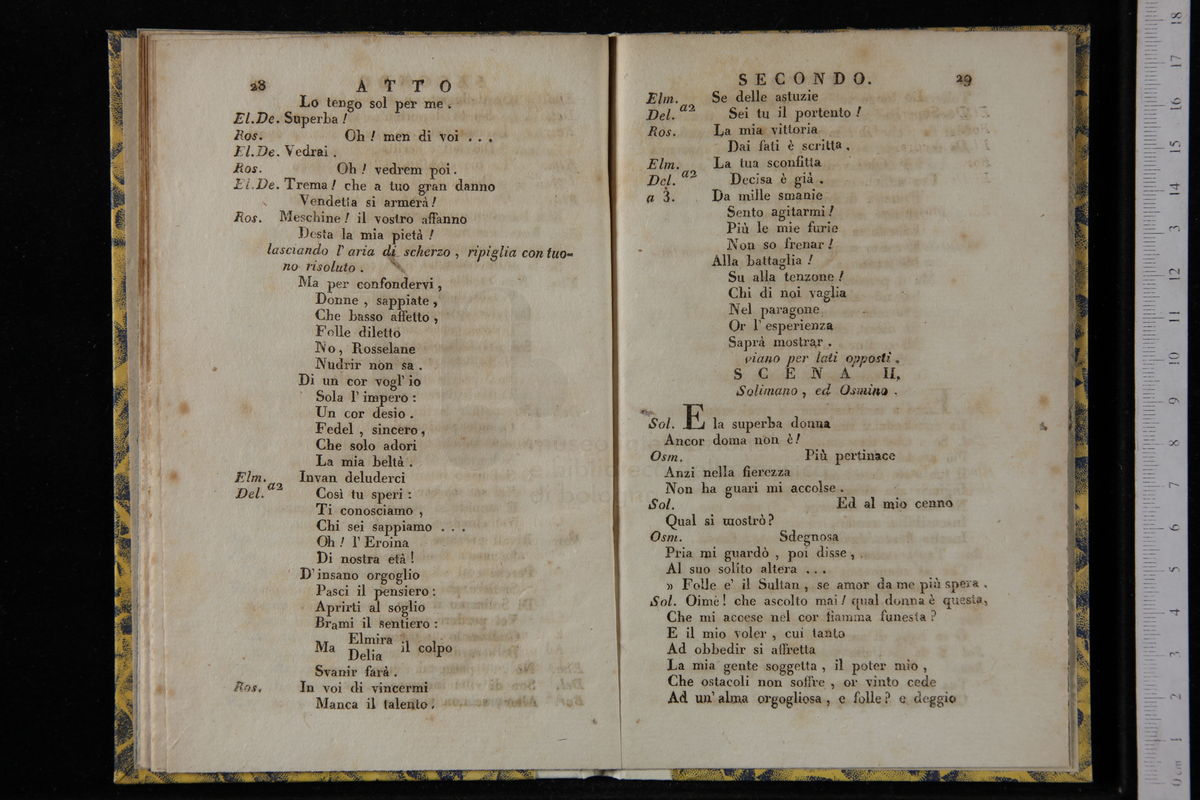 28 ATTO
Lo tengo sol per me .
El.De. Superba !
Ros. Oh ! men di voi . . .
El.De. Vedrai .
Ros. Oh ! vedrem poi .
El.De. Trema ! che a tuo gran danno
Vendetta si armerà !
Ros. Meschine ! il vostro affanno
Desta la mia pietà !
lasciando l' aria di scherzo , ripiglia con tuo-
no risoluto .
Ma per confondervi ,
Donne , sappiate ,
Che basso affetto ,
Folle diletto
No , Rosselane
Nudrir non sa .
Di un cor vogl' io
Sola l' impero :
Un cor desio .
Fedel , sincero ,
Che solo adori
La mia beltà .
Elm. Invan deluderci
Del. a2 Così tu speri :
Ti conosciamo ,
Chi sei sappiamo . . .
Oh ! l' Eroina
Di nostra età !
D' insano orgoglio
Pasci il pensiero :
Aprirti al soglio
Brami il sentiero :
Ma Elmira il colpo
Delia
Svanir farà .
Ros. In voi di vincermi
Manca il talento .
SECONDO. 29
Elm. Se delle astuzie
Del. a2 Sei tu il portento !
Ros. La mia vittoria
Dai fati è scritta .
Elm. La tua sconfitta
Del. a2 Decisa è già .
a 3. Da mille smanie
Sento agitarmi !
Più le mie furie
Non so frenar !
Alla battaglia !
Su alla tenzone !
Chi di noi vaglia
Nel paragone
Or l' esperienza
Saprà mostrar .
viano per lati opposti .
SCENA II.
Solimano , ed Osmino .
Sol. E la superba donna
Ancor doma non è !
Osm. Più pertinace
Anzi nella fierezza
Non ha guari mi accolse .
Sol. Ed al mio cenno
Qual si mostrò ?
Osm. Sdegnosa
Pria mi guardò , poi disse ,
Al suo solito altera . . .
» Folle e' il Sultan , se amor da me più spera .
Sol. Oimè ! che ascolto mai ! qual donna è questa,
Che mi accese nel cor fiamma funesta ?
E il mio voler , cui tanto
Ad obbedir si affretta
La mia gente soggetta , il poter mio ,
Che ostacoli non soffre , or vinto cede
Ad un' alma orgogliosa , e folle ? e deggio